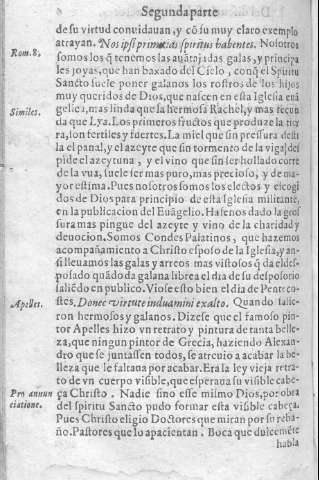 Segunda parte
de su virtud conuidauan, y cõ su muy claro exemplo
atrayan. Nos ipsi primitias spiritus habentes. Nosotros
Rom. 8.
somos los q̃ tenemos las auãtajadas galas, y principa
les joyas, que han baxado del Cielo, conq̃ el Spũitu
Sancto suele poner galanos los rostros de los hijos
muy queridos de Dios, que nascen en esta Iglesia euã
Similes.
gelica, mas linda que la hermosa Rachel, y mas fecun
da que Lya. Los primeros fructos que produze la tier
ra, son fertiles y fuertes. La miel que sin pressura desti
la el panal, y el azeyte que sin tormento de la viga, des
pide el azeytuna, y el vino que sin ser hollado corre
de la vua, suele ser mas puro, mas precioso, y de ma-
yor estima. Pues nosotros somos los electos y escogi
dos de Dios para principio de esta Iglesia militante,
en la publicacion del Euãgelio. Ha senos dado la gros
sura mas pingue del azeyte y vino de la charidad y
deuocion. Somos Condes Palatinos, que hazemos
acompañamiento a Christo esposo de la Iglesia, y an-
si lleuamos las galas y arreos mas vistosos q̃ da el des-
posado quãdo da galana librea el dia de su desposorio
saliẽdo en publico. Viose esto bien el dia de Pente co-
Apelles.
stes, Donec virtute induamini ex alto. Quando salie-
ron hermosos y galanos. Dizese que el famoso pin-
tor Apelles hizo vn retrato y pintura de tanta belle-
za, que ningun pintor de Grecia, haziendo Alexan-
dro que se juntassen todos, se atreuio a acabar la be-
lleza que le faltaua por acabar. Era la ley vieja retra-
to de vn cuerpo visible, que esperaua su visible cabe-
Pro annun
ça Christo. Nadie sino esse mismo Dios, por obra
ciatione.
del spiritu Sancto pudo formar esta visible cabeça.
Pues Christo eligio Doctores que miran por su reba-
ño. Pastores que lo apacientan. Boca que dulcemẽte
habla